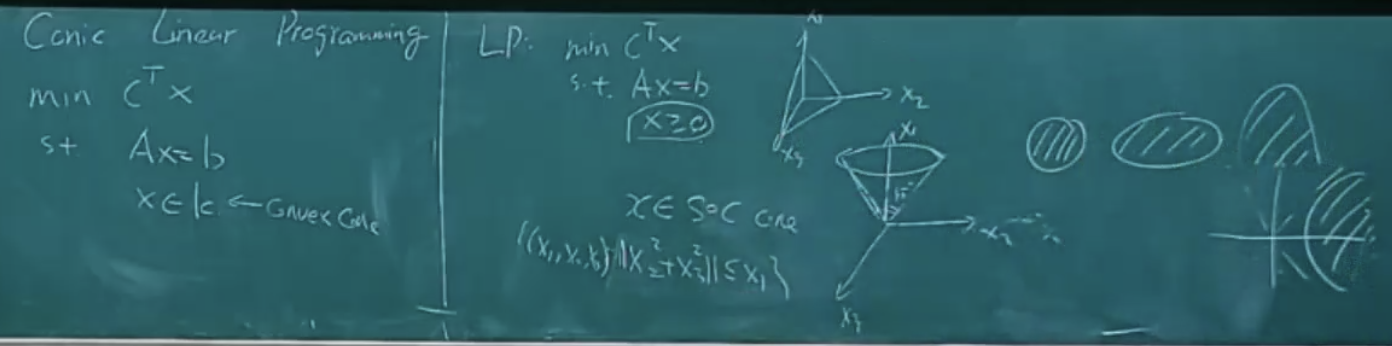 Conic Linear Programming
min CᵀX
st. AX=b
X∈K ← Convex Cone
LP: min CᵀX
s.t. AX=b
X≥0
X∈SOC Cone
{(X₁,X₂,X₃): ||X₂²+X₃²|| ≤ X₁}
X₁
X₂
X₃
X₁
45°
X₂
X₃